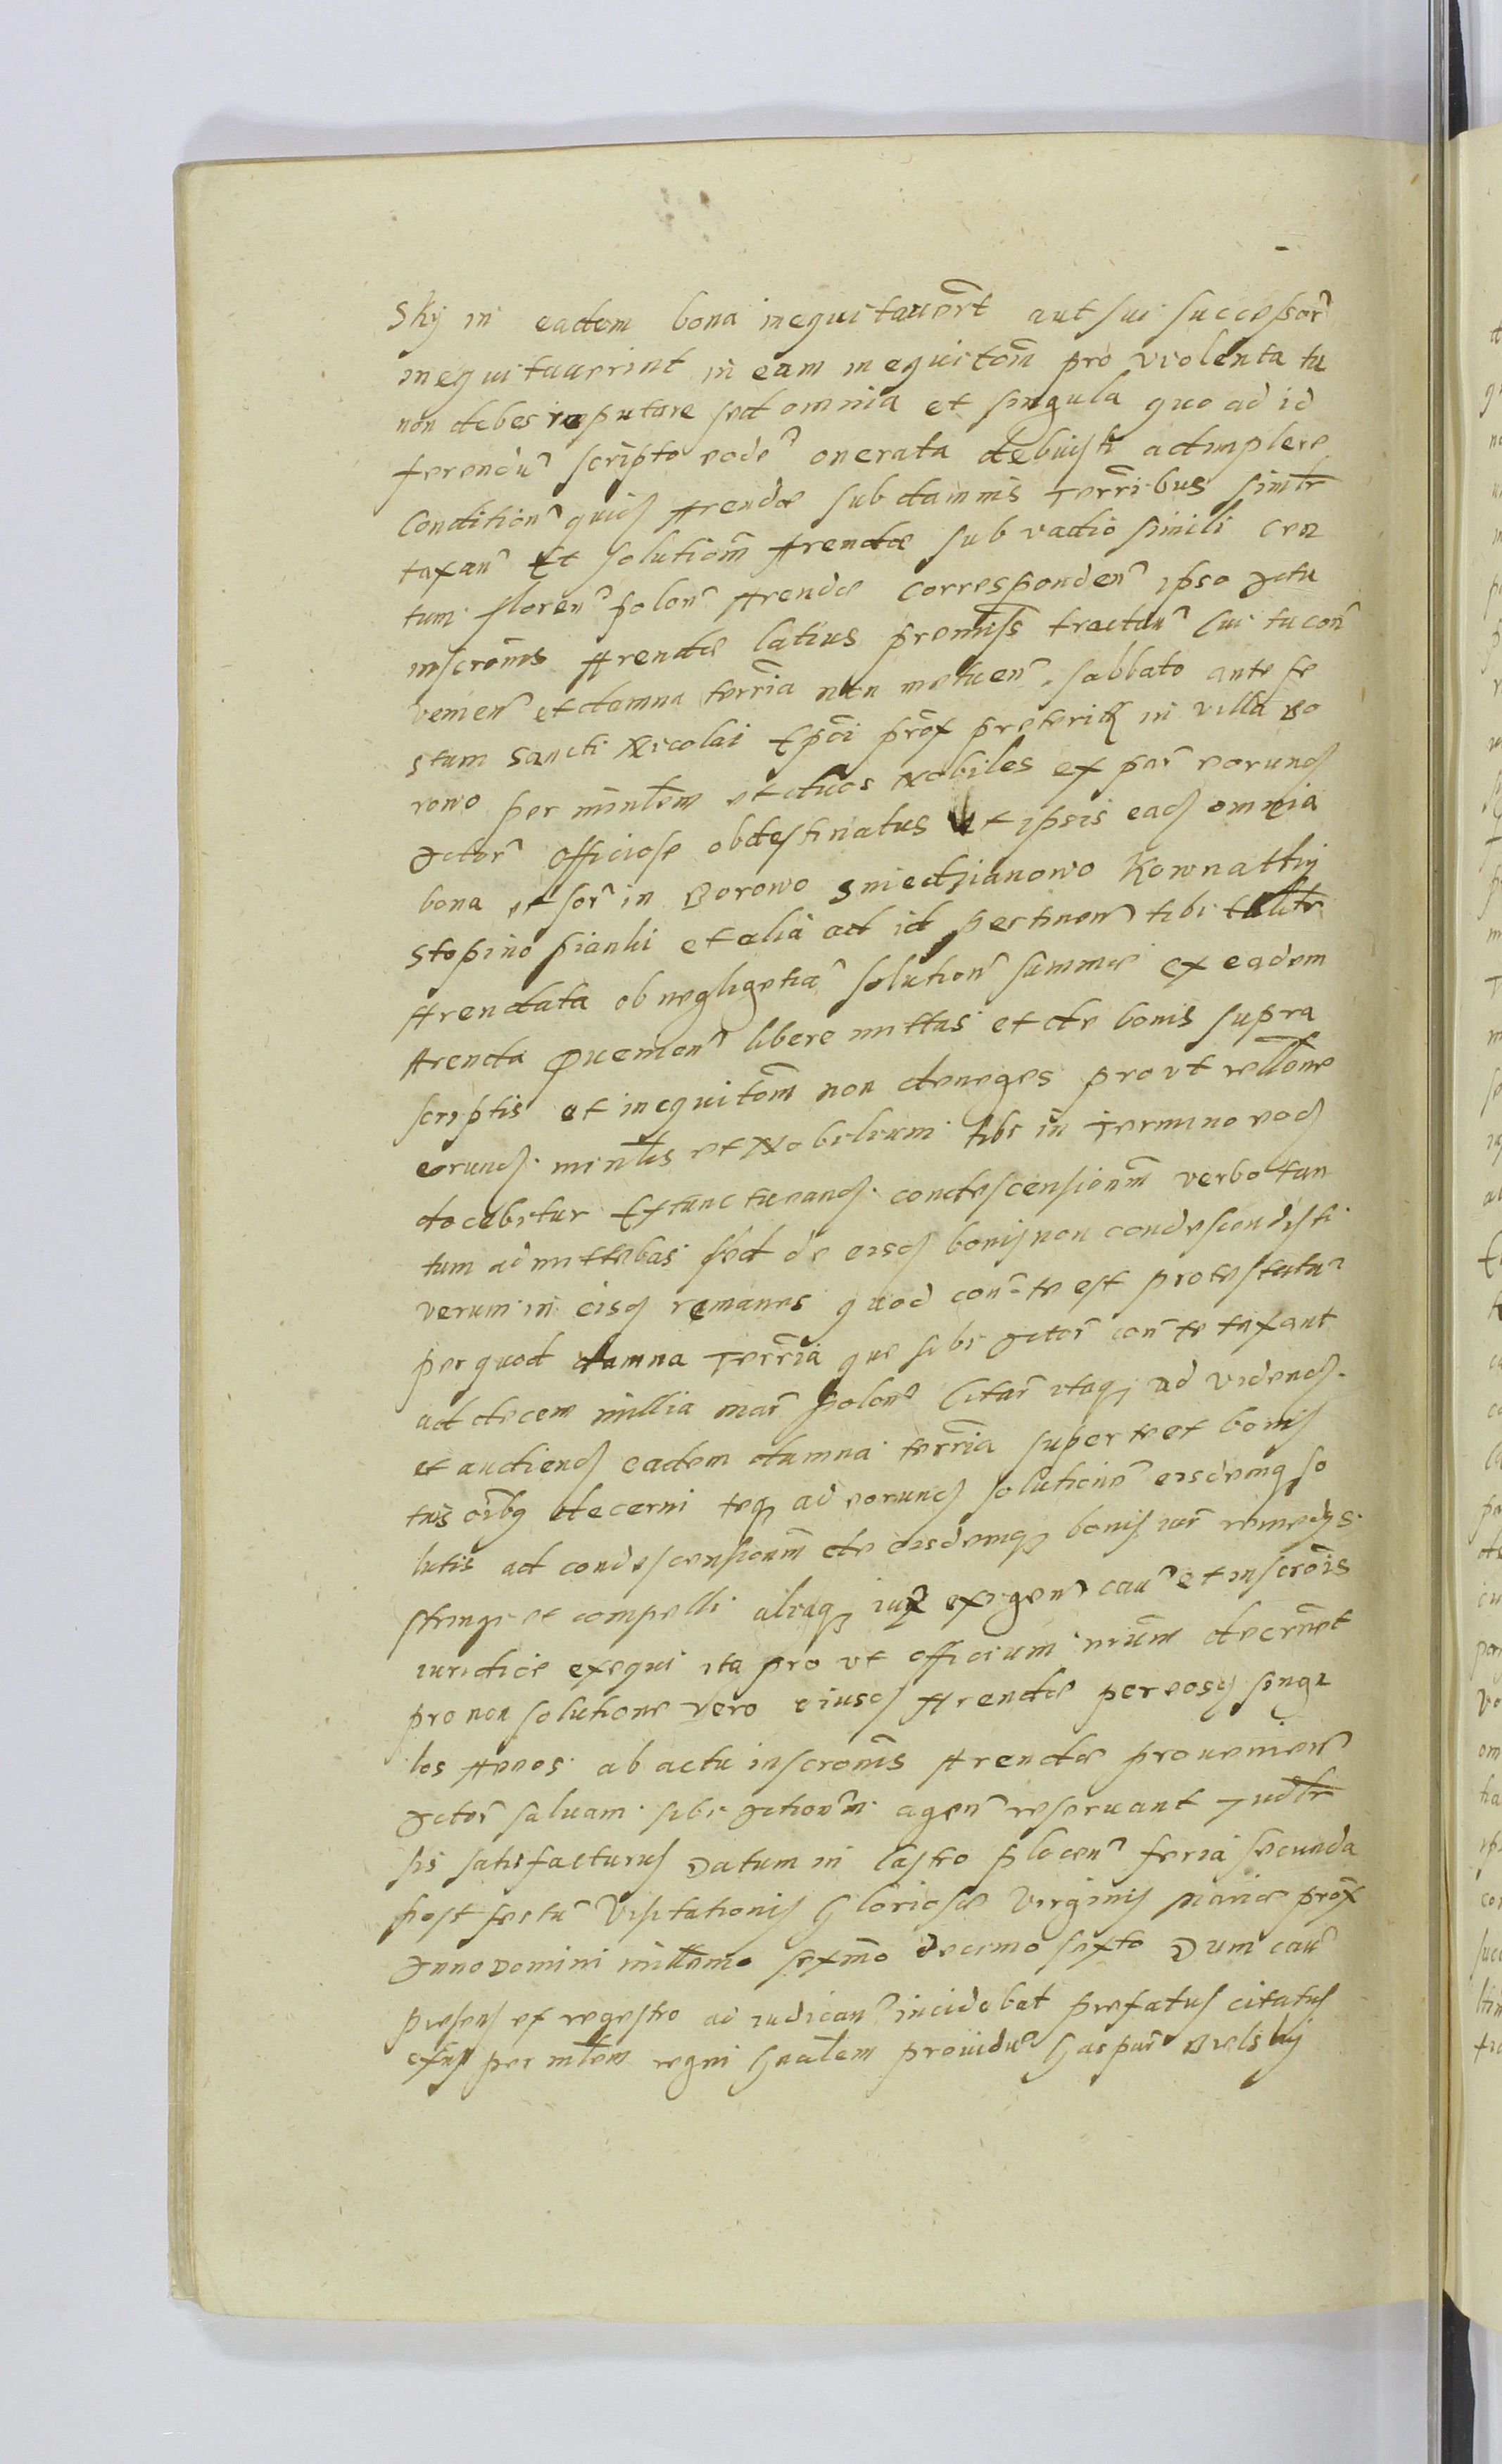 sky in eadem bona inequitauert aut sui successor
inequitauerint in eam inequitom pro violenta tu
non debes reputare sed omnia et singula quo ad id
ferendu scripto eode onerata debuisti adimplere
Condition quid Arendæ sub damnis Terribus simlr
taxan Et solutiom Arendæ sub vadio simili cen
tum floren polon Arendæ correspondẽ ipso Actu
inscronis Arendæ latius premiss tractatu Cui tu con
venien et damna terria non metuen. sabbato ante fe
stum Sancti Nicolai Epoi prox preterit in villa Bo
rowo per minlem et duos Nobiles ex par eorund
Actor officiose obdestinatus et ipsis ead omnia
bona et sor in Borowo Sniedzianowo Kownatkij
Stopino pianki et alia ad id pertinen tibi talitr
Arendata ob negligetia solution summæ ex eadem
Arenda puenien libere mittas et de bonis supra
scriptis et inequitom non deneges prout rellone
eorund. minlis et Nobilium tibi in Termino eod
docebitur Extunc tu eand. condescensionm verbo tan
tum admittebas sed de eisd bonis non condescendisti
verum in eisd remanes quod con te est protestatu
per quod damna Terria que sibi Actor con te taxant
ad decem millia mar polon Citar itaq ad vidend.
et audiend eadem damna terria super te et bonis
tuis oibg decerni teq ad eorund solutione eisdemq so
lutis ad condescensionm de eisdemq bonis iur remedys.
stringi et compelli aliaq iux exigen cau et inscrois
iuridice exequi ita pro ut officium nrum decrnet
pro non solutione vero eiusd Arendæ per eosd singu
los Annos ab actu inscronis Arendæ prouenien
Actor saluam sibi Actionem agen reseruant Judlr
sis satisfacturus Datum in Castro plocen feria secunda
post festu Visitationis Gloriosæ Virginis Mariæ prox
Anno Domini millemo sexmo decimo sexto Dum cau
presens ex regestro ad iudican incidebat prefatus citatus
exns per mlem regni Gnalem prouidu Gaspar Bielskij